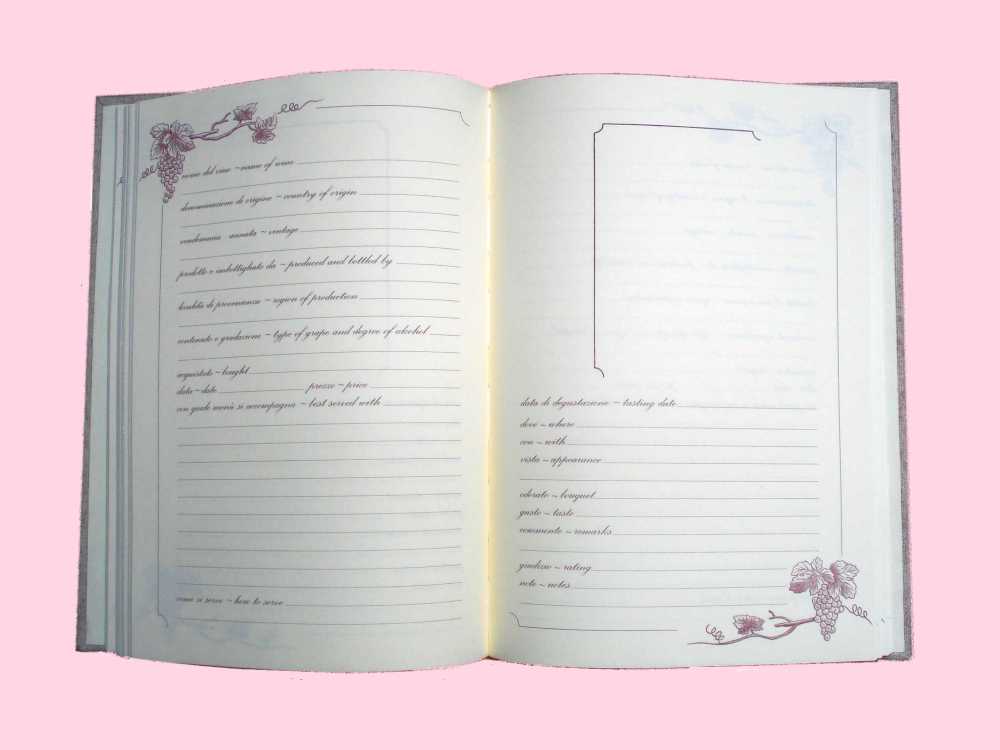 nome del vino ~ name of wine
denominazione di origine ~ country of origin
vendemmia annata ~ vintage
prodotto e imbottigliato da ~ produced and bottled by
località di provenienza ~ region of production
contenuto e gradazione ~ type of grape and degree of alcohol
acquistato ~ bought
data ~ date prezzo ~ price
con quale menù si accompagna ~ best served with
come si serve ~ how to serve
data di degustazione ~ tasting date
dove ~ where
con ~ with
vista ~ appearance
odorato ~ bouquet
gusto ~ taste
commento ~ remarks
giudizio ~ rating
note ~ notes